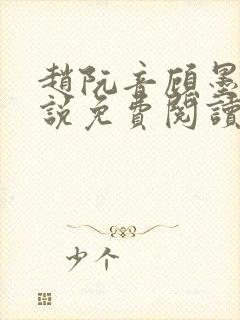 趙阮音顧墨
說免費閱讀
少个